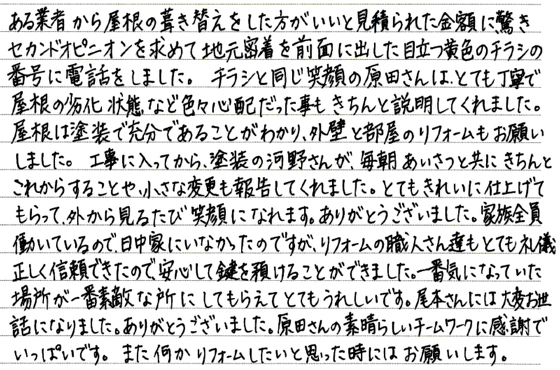 ある業者から屋根の葺き替えをした方がいいと見積られた金額に驚き
セカンドオピニオンを求めて地元密着を前面に出した目立つ黄色のチラシの
番号に電話をしました。 チラシと同じ笑顔の原田さんは、とても丁寧で
屋根の劣化状態など色々心配だった事もきちんと説明してくれました。
屋根は塗装で充分であることがわかり、外壁と部屋のリフォームもお願い
しました。 工事に入ってから、塗装の河野さんが、毎朝あいさつと共にきちんと
これからすることや、小さな変更も報告してくれました。とてもきれいに仕上げて
もらって、外から見るたび笑顔になれます。ありがとうございました。家族全員
働いているので日中家にいなかったのですが、リフォームの職人さん達もとても礼儀
正しく信頼できたので安心して鍵を預けることができました。一番気になっていた
場所が一番素敵な所にしてもらえてとてもうれしいです。尾本さんには大変お世
話になりました。ありがとうございました。原田さんの素晴らしいチームワークに感謝で
いっぱいです。 また何かリフォームしたいと思った時にはお願いします。